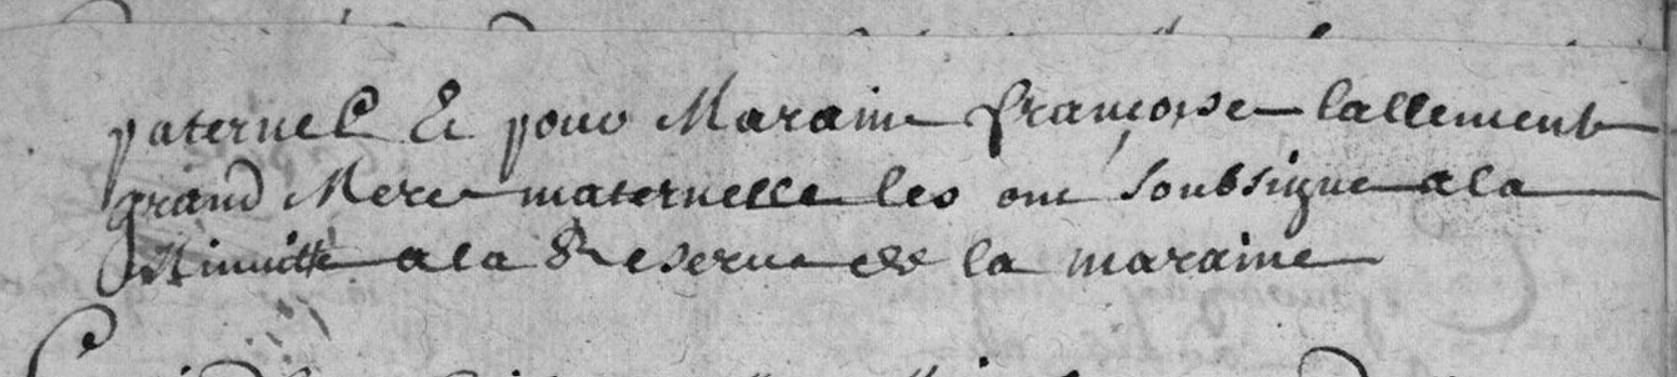 paternel Et pour Maraine françoise lallement
grand Mere maternelle les ont soubsigne a la
Minutte a la Reserve de la maraine